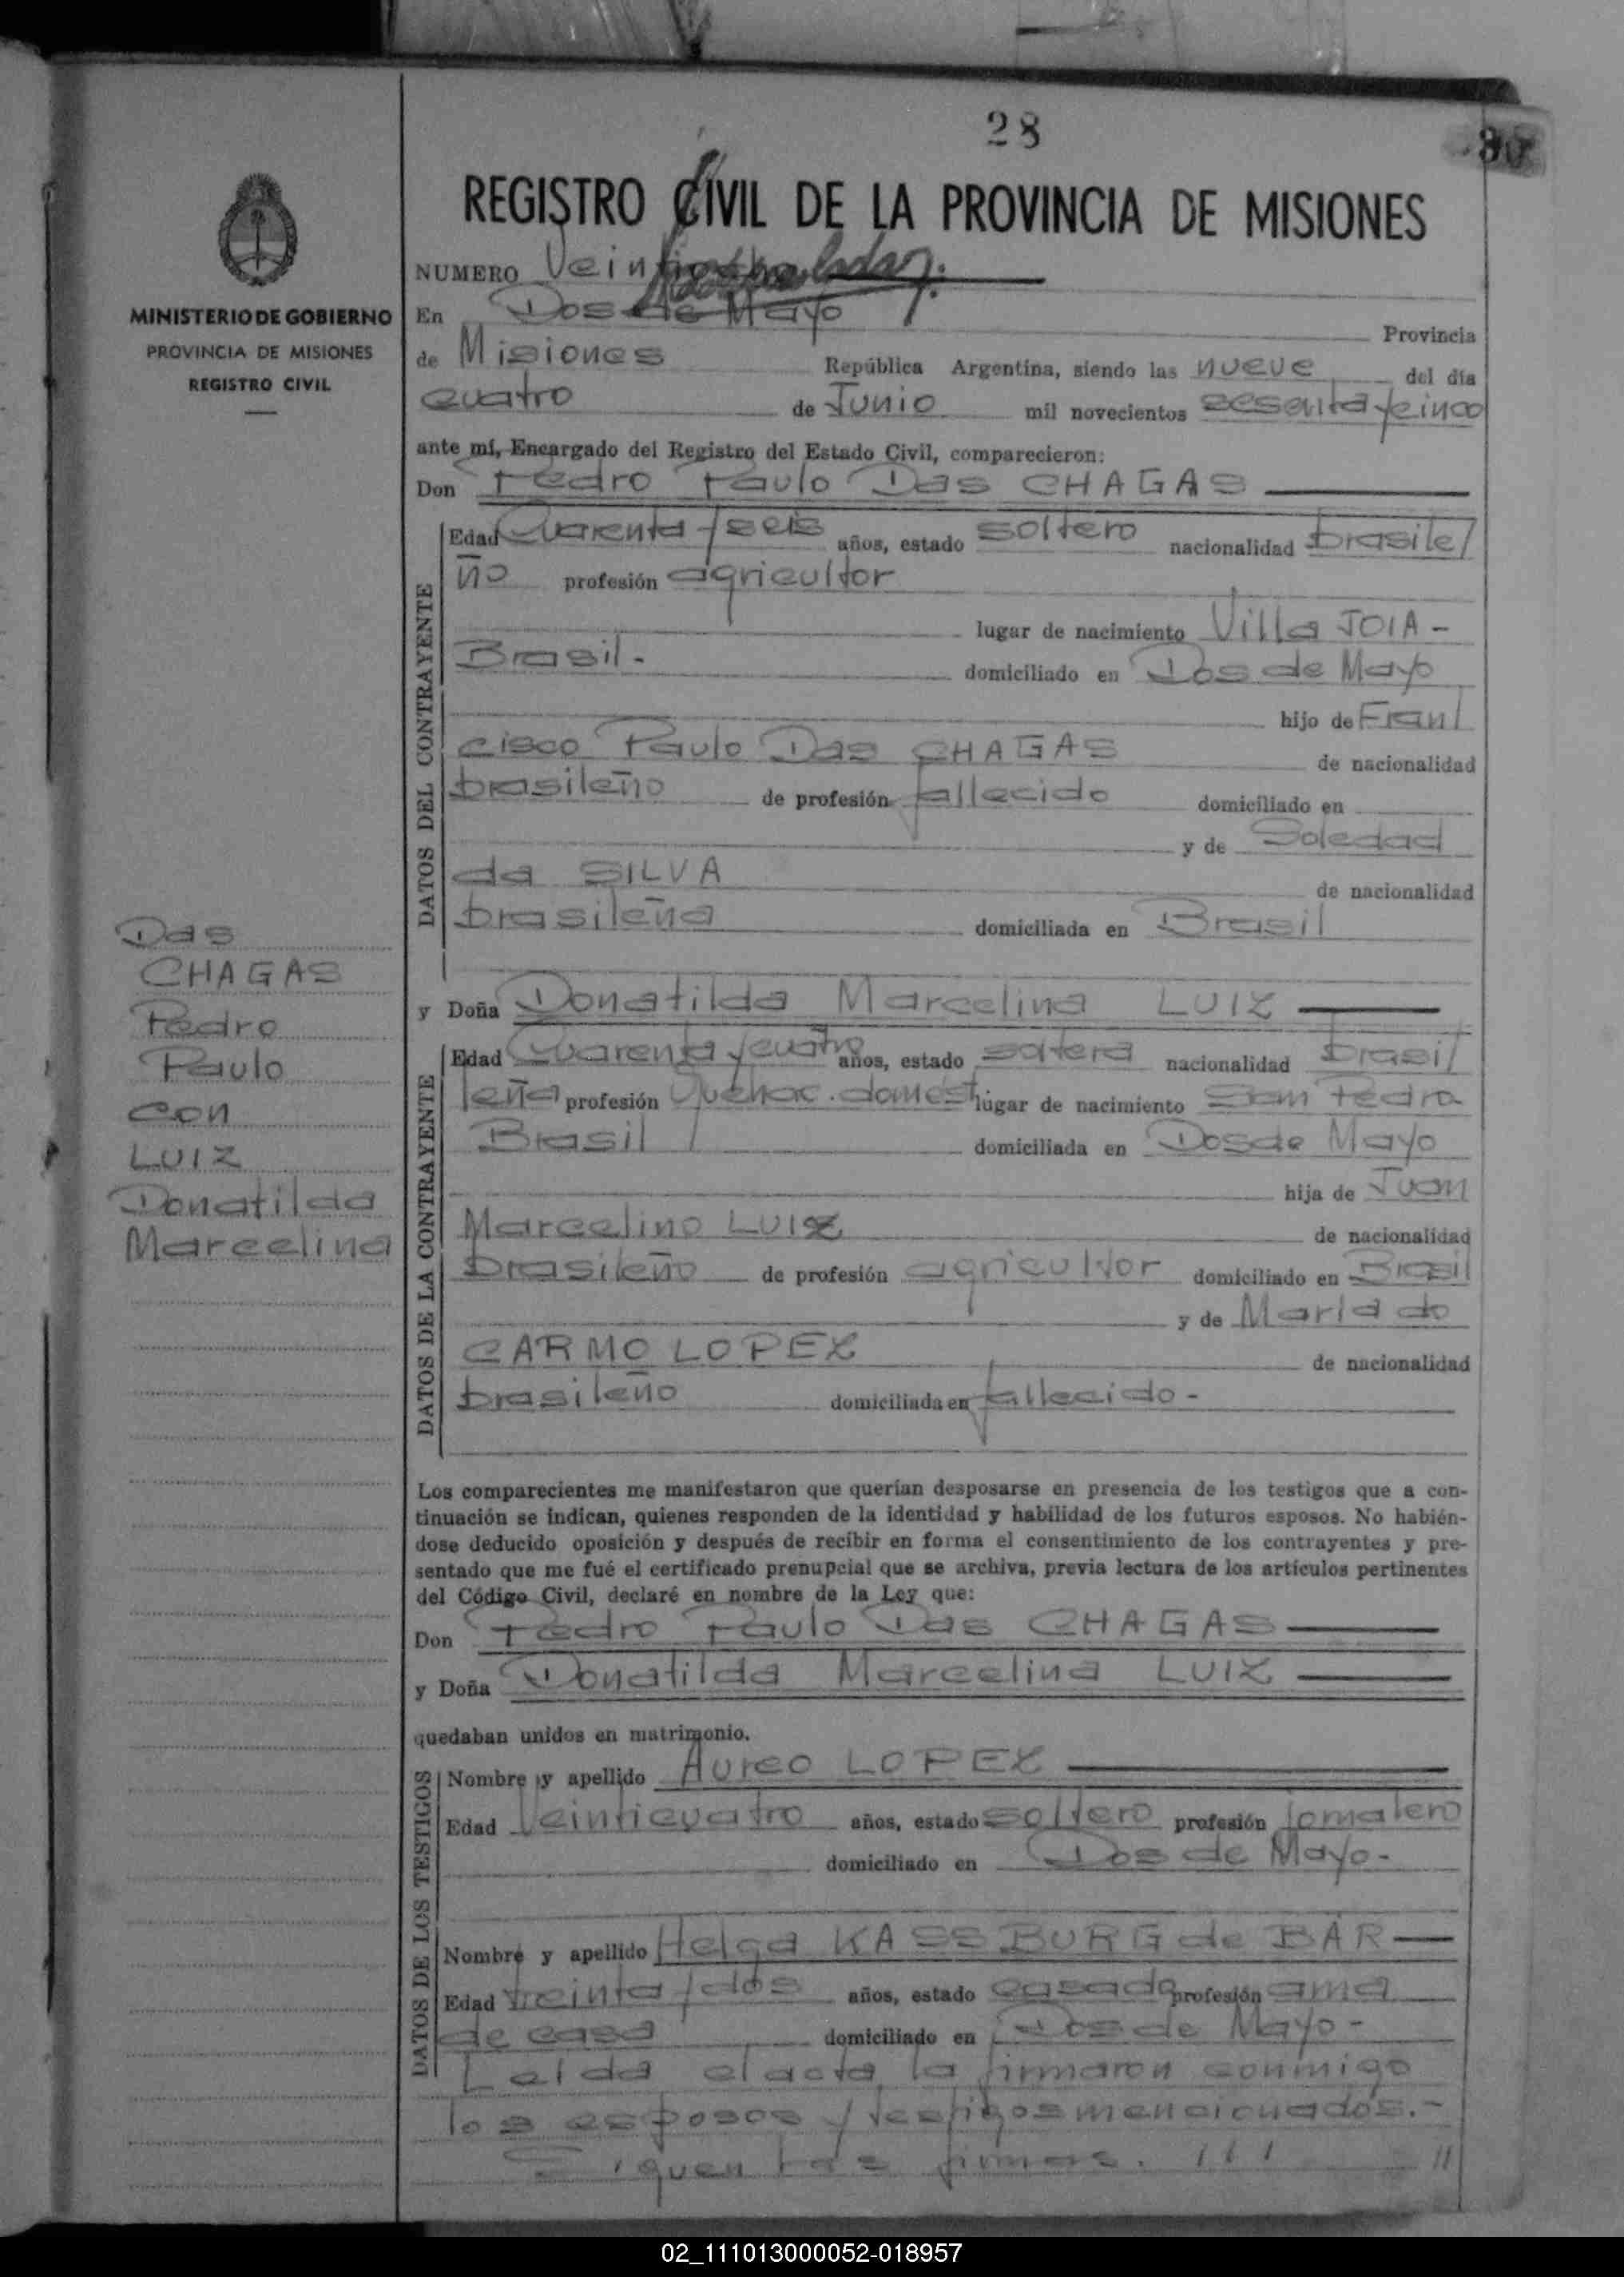 28
30
REGISTRO CIVIL DE LA PROVINCIA DE MISIONES
MINISTERIO DE GOBIERNO
PROVINCIA DE MISIONES
REGISTRO CIVIL
NUMERO
En Dos de Mayo Provincia
de Misiones República Argentina, siendo las nueve del día
cuatro de Junio mil novecientos sesenta y cinco
ante mí, Encargado del Registro del Estado Civil, comparecieron:
Don Pedro Paulo Das CHAGAS
DATOS DEL CONTRAYENTE
Edad Cuarenta y seis años, estado soltero nacionalidad brasile/
ño profesión agricultor
lugar de nacimiento Villa JOIA -
Brasil - domiciliado en Dos de Mayo
hijo de Fran/
cisco Paulo Das CHAGAS de nacionalidad
brasileño de profesión fallecido domiciliado en
y de Soledad
da SILVA de nacionalidad
brasileña domiciliada en Brasil
Das
CHAGAS
Pedro
Paulo
con
LUIZ
Donatilda
Marcelina
y Doña Donatilda Marcelina LUIZ
DATOS DE LA CONTRAYENTE
Edad Cuarenta y cuatro años, estado soltera nacionalidad brasi/
leña profesión Quehac. domest lugar de nacimiento San Pedro
Brasil domiciliada en Dos de Mayo
hija de Juan
Marcelino LUIZ de nacionalidad
brasileño de profesión agricultor domiciliado en Brasil
y de Maria do
CARMO LOPEZ de nacionalidad
brasileño domiciliada en fallecido -
Los comparecientes me manifestaron que querían desposarse en presencia de los testigos que a con-
tinuación se indican, quienes responden de la identidad y habilidad de los futuros esposos. No habién-
dose deducido oposición y después de recibir en forma el consentimiento de los contrayentes y pre-
sentado que me fué el certificado prenupcial que se archiva, previa lectura de los artículos pertinentes
del Código Civil, declaré en nombre de la Ley que:
Don Pedro Paulo Das CHAGAS
y Doña Donatilda Marcelina LUIZ
quedaban unidos en matrimonio.
DATOS DE LOS TESTIGOS
Nombre y apellido Aureo LOPEZ
Edad Veinticuatro años, estado soltero profesión jornalero
domiciliado en Dos de Mayo -
Nombre y apellido Helga KASSBURG de BÄR
Edad treinta y dos años, estado casada profesión ama
de casa domiciliado en Dos de Mayo -
Leida el acta, la firmaron conmigo
los esposos y testigos mencionados.-
Siguen las firmas. /// //
02_111013000052-018957